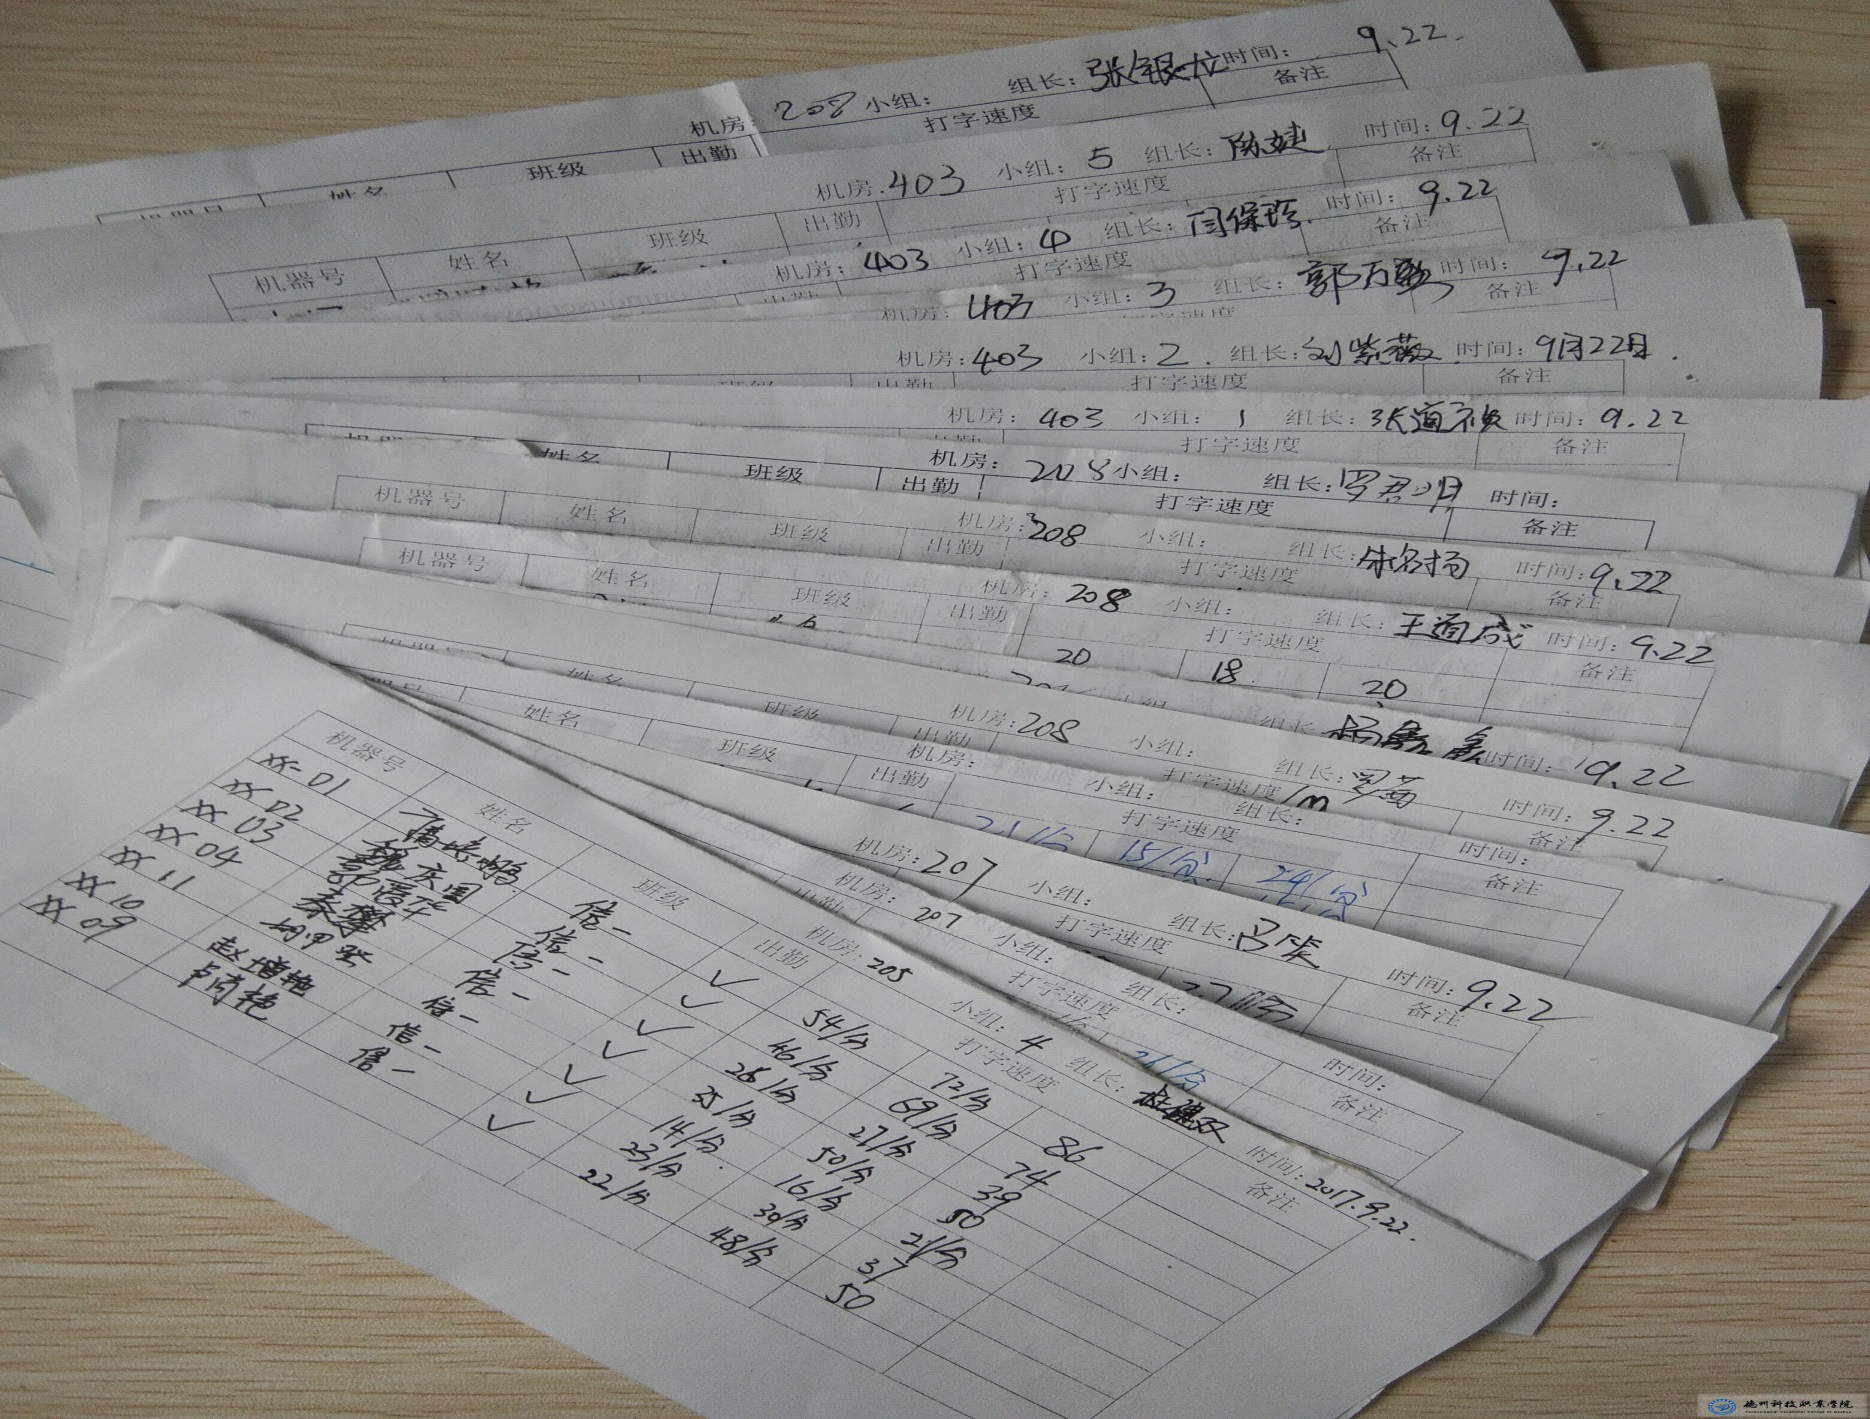 机房: 208 小组: 组长: 张银 时间: 9.22.
姓名 班级 出勤 打字速度 备注
机房: 403 小组: 5 组长: 陈婕 时间: 9.22
机器号 姓名 班级 出勤 打字速度 备注
机房: 403 小组: 4 组长: 闫保珍 时间: 9.22
打字速度 备注
机房: 403 小组: 3 组长: 郭万 时间: 9.22
备注
机房: 403 小组: 2. 组长: 刘紫薇 时间: 9月22日.
班级 出勤 打字速度 备注
机房: 403 小组: 1 组长: 张道 时间: 9.22
打字速度 备注
机房: 208 小组: 组长: 罗君明 时间:
姓名 班级 出勤 打字速度 备注
机房: 208 小组: 组长: 朱名扬 时间: 9.22
机器号 姓名 班级 出勤 打字速度 备注
机房: 208 小组: 组长: 王道成 时间: 9.22
机器号 姓名 班级 出勤 打字速度 备注
20 18. 20
组长: 杨鑫鑫 时间: 9.22
机房: 208 小组: 组长: 罗茜 时间: 9.22
机器号 姓名 班级 出勤 打字速度 备注
机房: 小组: 组长: 时间:
姓名 班级 出勤 打字速度 备注
21/分 15/分 24/分
机房: 207 小组: 组长: 吕 时间: 9.22
打字速度 备注
机房: 207 小组: 组长: 时间:
出勤 打字速度 备注
21/分
机房: 205 小组: 4 组长: 时间: 2017.9.22.
机器号 姓名 班级 出勤 打字速度 备注
XX-01 信一 ✓ 54/分 72/分 86
XX 02 魏庆国 信一 ✓ 46/分 69/分 74
XX 03 信一 ✓ 26/分 27/分 39
XX 04 秦攀 信一 ✓ 25/分 50/分 50
XX 11 信一 ✓ 14/分. 16/分 21/分
XX 10 赵增艳 信一 ✓ 23/分 30/分 37
XX 09 卢尚艳 信一 ✓ 22/分 48/分 50
德州科技职业学院